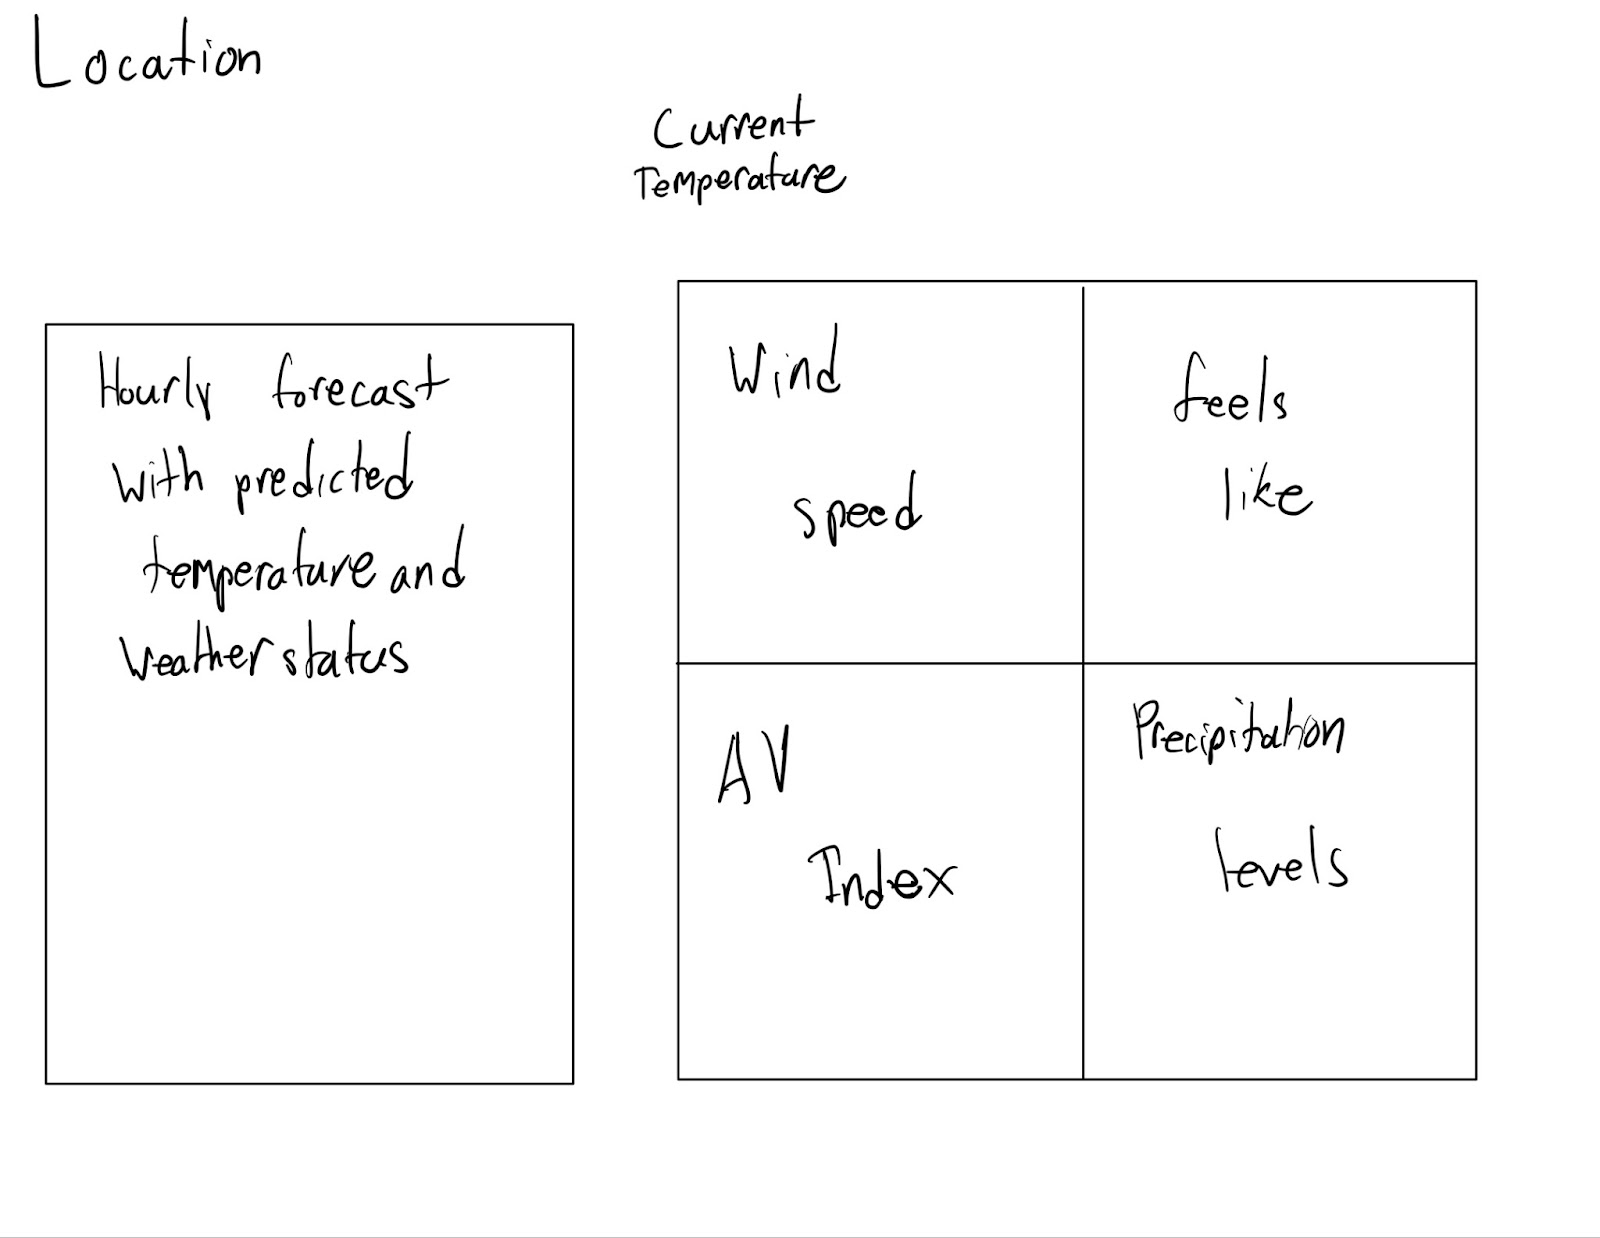 Location
Current
Temperature
Hourly forecast
with predicted
temperature and
Weather status
Wind
speed
feels
like
AV
Index
Precipitation
levels